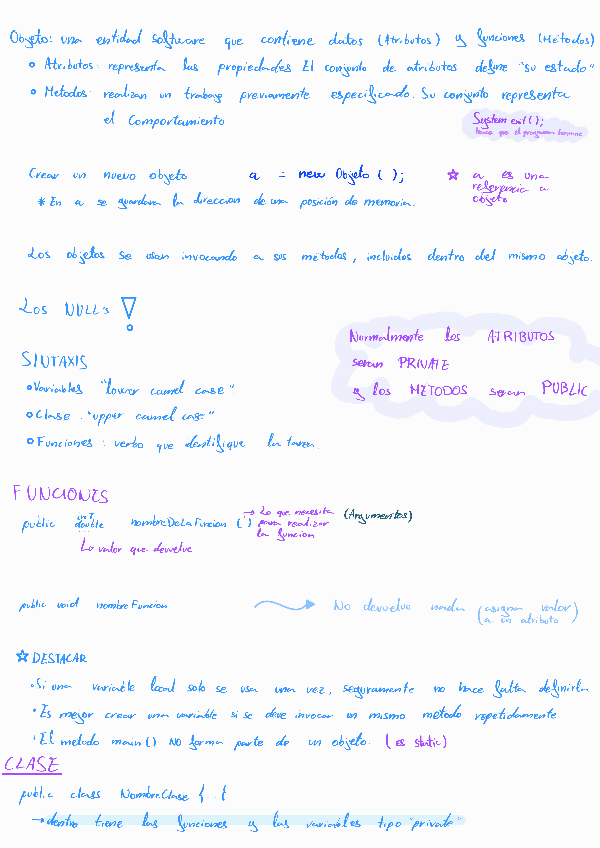 Objeto: una entidad software que contiene datos (Atributos) y funciones (Métodos)
• Atributos: representa las propiedades El conjunto de atributos define "su estado"
• Metodos: realizan un trabajo previamente especificado. Su conjunto representa
el Comportamiento
System.exit();
hace que el programa termine
Crear un nuevo objeto a = new Objeto ();
☆ a es una
referencia a
objeto
* En a se guardara la direccion de una posición de memoria.
Los objetos se usan invocando a sus métodos, incluidos dentro del mismo objeto.
Los NULL's !
Normalmente los ATRIBUTOS
seran PRIVATE
y los METODOS seran PUBLIC
SINTAXIS
• Variables "lower camel case"
• Clase : "upper camel case"
• Funciones : verbo que identifique la tarea.
FUNCIONES
public int double nombreDeLaFuncion ()
→ Lo que necesita (Argumentos)
para realizar
la función
Lo valor que devuelve
public void nombreFuncion → No devuelve nada (asignar valor
a un atributo)
☆ DESTACAR
• Si una variable local solo se usa una vez, seguramente no hace falta definirla
• Es mejor crear una variable si se debe invocar un mismo metodo repetidamente
• El metodo main() NO forma parte de un objeto. (es static)
CLASE
public class NombreClase { {
→ dentro tiene las funciones y las variables tipo "private"